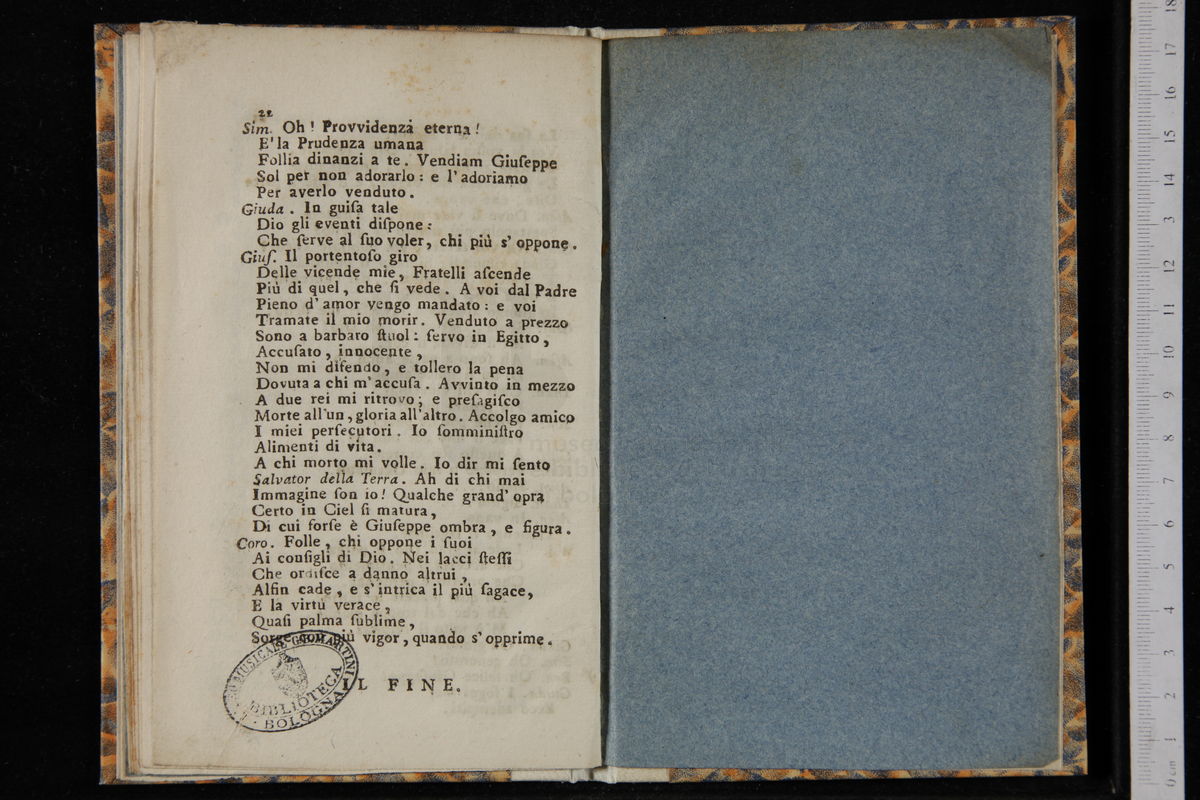 22
Sim. Oh! Provvidenza eterna!
E' la Prudenza umana
Follía dinanzi a te. Vendiam Giuſeppe
Sol per non adorarlo: e l'adoriamo
Per averlo venduto.
Giuda. In guiſa tale
Dio gli eventi diſpone:
Che ſerve al ſuo voler, chi più s'oppone.
Giuſ. Il portentoſo giro
Delle vicende mie, Fratelli aſcende
Più di quel, che ſi vede. A voi dal Padre
Pieno d'amor vengo mandato: e voi
Tramate il mio morir. Venduto a prezzo
Sono a barbaro ſtuol: ſervo in Egitto,
Accuſato, innocente,
Non mi difendo, e tollero la pena
Dovuta a chi m'accuſa. Avvinto in mezzo
A due rei mi ritrovo; e preſagiſco
Morte all'un, gloria all'altro. Accolgo amico
I miei perſecutori. Io ſomminiſtro
Alimenti di vita.
A chi morto mi volle. Io dir mi ſento
Salvator della Terra. Ah di chi mai
Immagine ſon io! Qualche grand'opra
Certo in Ciel ſi matura,
Di cui forſe è Giuſeppe ombra, e figura.
Coro. Folle, chi oppone i ſuoi
Ai conſigli di Dio. Nei lacci ſteſſi
Che ordiſce a danno altrui,
Alfin cade, e s'intrica il più ſagace,
E la virtù verace,
Quaſi palma ſublime,
Sorge con più vigor, quando s'opprime.
IL FINE.
MUSICALE G.B. MARTINI
BIBLIOTECA
BOLOGNA
0 cm 1 2 3 4 5 6 7 8 9 10 11 12 13 14 15 16 17 18